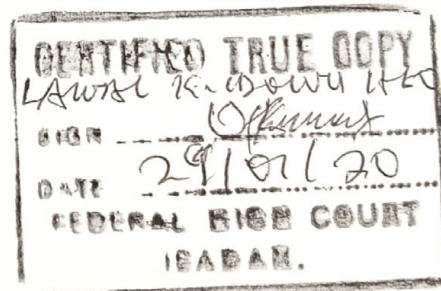 CERTIFIED TRUE COPY
LAWAL K. IDOWU HEO
SIGN
DATE 29/01/20
FEDERAL HIGH COURT
IBADAN.